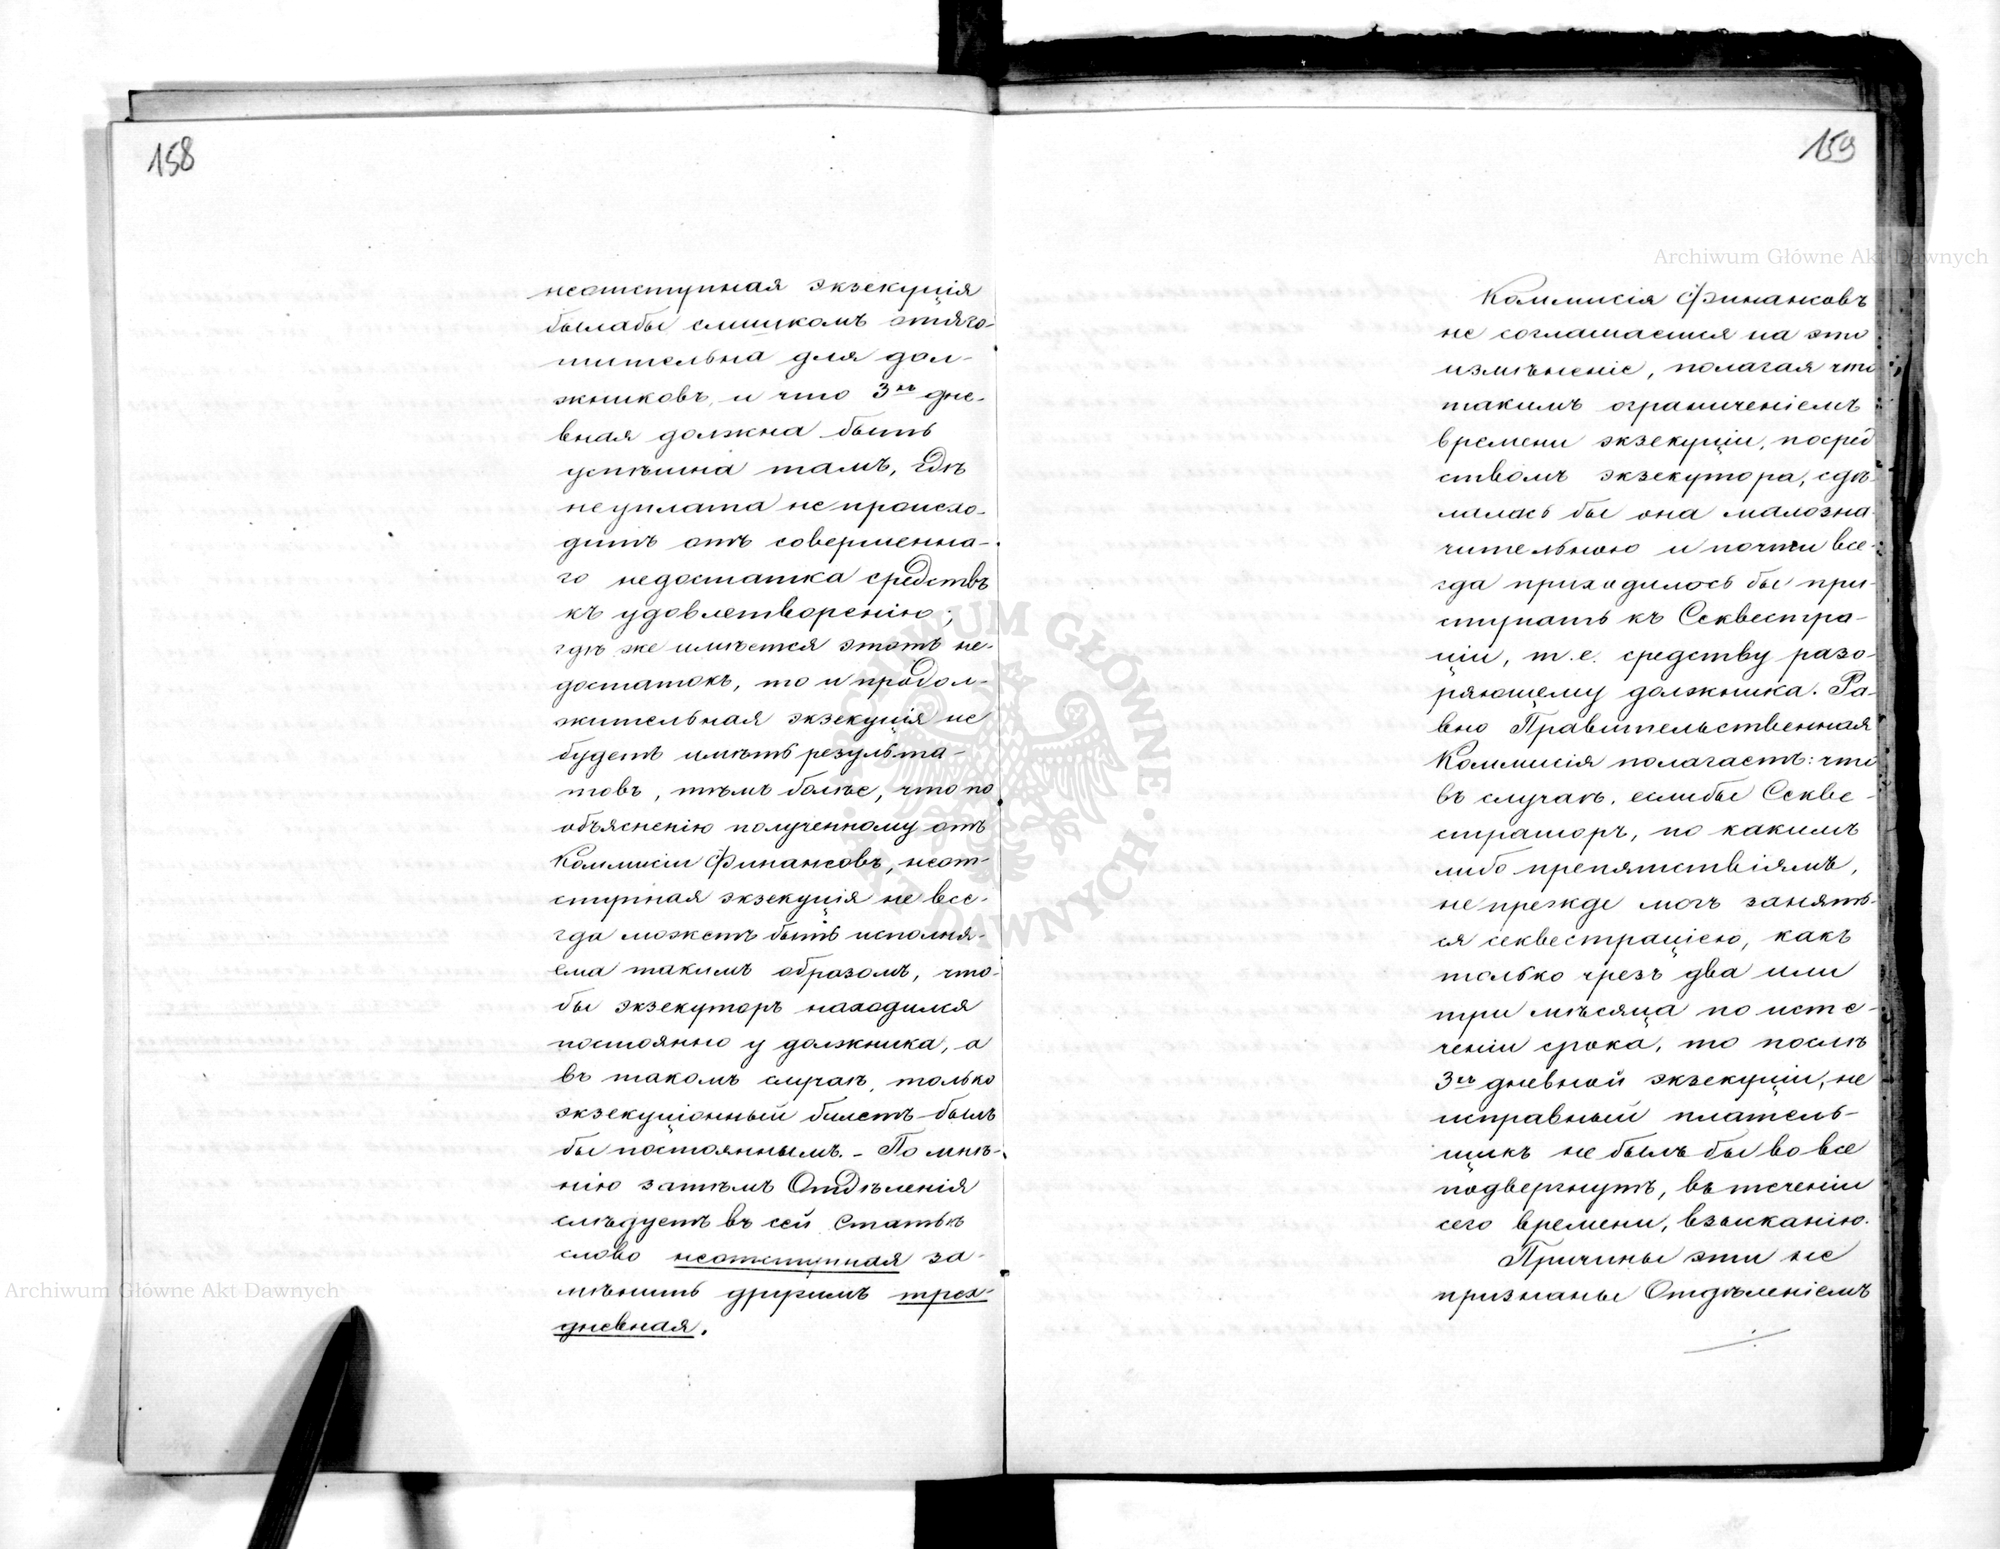 158
неотступная экзекуція
былабы слишкомъ отяго-
тительна для дол-
жниковъ, и что 3хъ дне-
вная должна быть
успѣшна тамъ, гдѣ
неуплата не происхо-
дитъ отъ совершенна-
го недостатка средствъ
къ удовлетворенію;
гдѣ же имѣется этотъ не-
достатокъ, то и продол-
жительная экзекуція не
будетъ имѣть результа-
товъ, тѣмъ болѣе, что по
объясненію полученному отъ
Коммисіи Финансовъ, неот-
ступная экзекуція не все-
гда можетъ быть исполня-
ема такимъ образомъ, что-
бы экзекуторъ находился
постоянно у должника, а
въ такомъ случаѣ, только
экзекуціонный билетъ былъ
бы постояннымъ. - По мнѣ-
нію затѣмъ Отдѣленія
слѣдуетъ въ сей Статьѣ
слово неотступная за-
мѣнить другимъ трех-
дневная.
159
Коммисія Финансовъ
не соглашается на это
измѣненіе, полагая что
такимъ ограниченіемъ
времени экзекуціи, посред
ствомъ экзекутора, сдѣ-
лалась бы она малозна-
чительною и почти все-
гда приходилось бы при-
ступать къ Секвестра-
ціи, т. е. средству разо-
ряющему должника. Ра-
вно Правительственная
Коммисія полагаетъ: что
въ случаѣ, еслибы Секве-
страторъ, по какимъ
либо препятствіямъ,
не прежде могъ занять-
ся секвестраціею, какъ
только чрезъ два или
три мѣсяца по исте-
ченіи срока, то послѣ
3хъ дневной экзекуціи, не
исправный платель-
щикъ не былъ бы вовсе
подвергнутъ, въ теченіи
сего времени, взысканію.
Причины эти не
признаны Отдѣленіемъ
Archiwum Główne Akt Dawnych
Archiwum Główne Akt Dawnych
ARCHIWUM GŁÓWNE AKT DAWNYCH